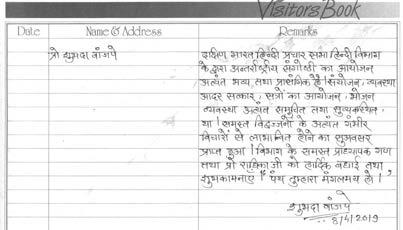 Visitors Book
Date Name & Address Remarks
प्रो शुभदा वांजपे
दक्षिण भारत हिन्दी प्रचार सभा हिन्दी विभाग
के द्वारा अन्तर्राष्ट्रीय संगोष्ठी का आयोजन
अत्यंत भव्य तथा प्रासंगिक है। संयोजन, व्यवस्था
आदर सत्कार, सत्रों का आयोजन, भोजन
व्यवस्था अत्यंत समुचित तथा सुव्यवस्थित
था। समस्त विद्वज्जनों के अत्यंत गंभीर
विचारों से लाभान्वित होने का सुअवसर
प्राप्त हुआ। विभाग के समस्त प्राध्यापक गण
तथा प्रो जी को हार्दिक बधाई तथा
शुभकामनाएं। "पंथ तुम्हारा मंगलमय हो।"
शुभदा वांजपे
8/4/2019